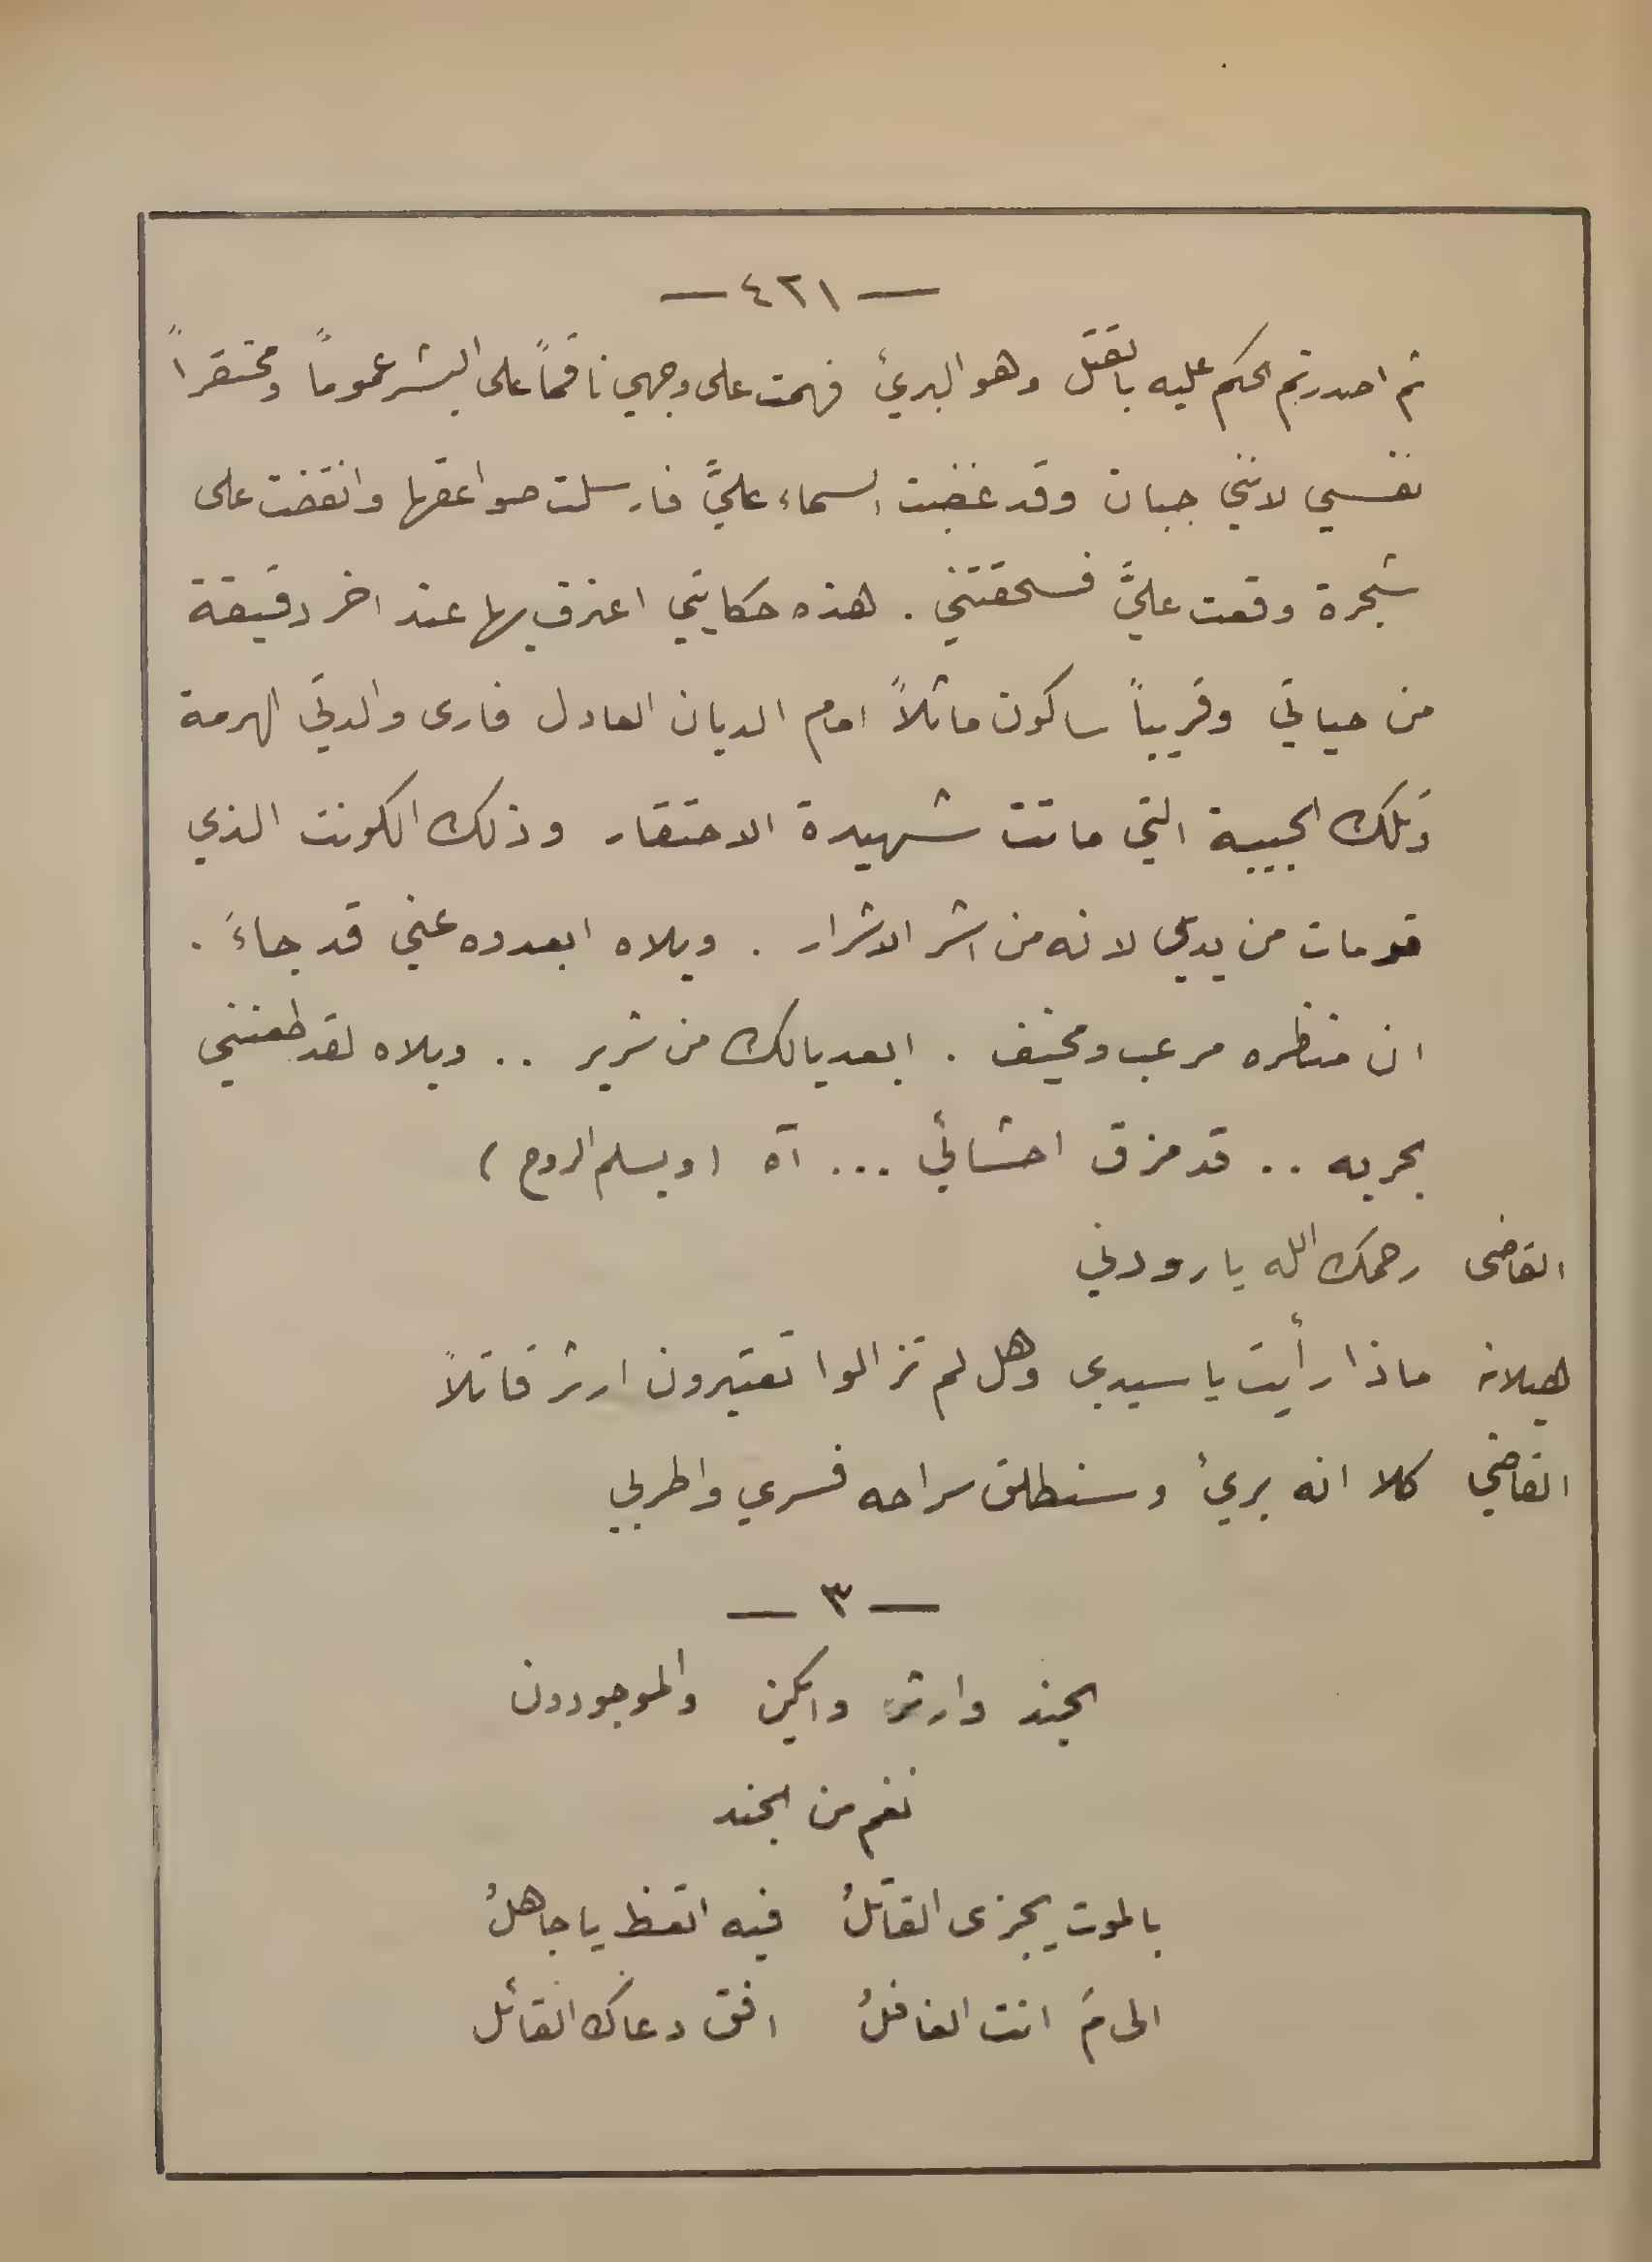 — ٤٢١ —
ثم اصدرتم الحكم عليه بالقتل وهو البريُ فهمت على وجهي ناقماً على البشر عموماً ومحتقراً
نفسي لانني جبان وقد غضبت السماء عليَّ فارسلت صواعقها وانقضت على
شجرة وقعت عليَّ فسحقتني . هذه حكايتي اعترف بها عند اخر دقيقة
من حياتي وقريباً ساكون ماثلاً امام الديان العادل فارى والدتي الهرمة
وتلك الحبيبة التي ماتت شهيدة الاحتقار وذلك الكونت الذي
قد مات من يدي لانه من اشر الاشرار . ويلاه ابعدوه عني قد جاءَ .
ان منظره مرعب ومخيف . ابعد يالك من شرير .. ويلاه لقد طعنني
بحربه .. قد مزق احشائي ... آه ( ويسلم الروح )
القاضى رحمك الله يا رودني
هيلانه ماذا رأيت يا سيدي وهل لم تزالوا تعتبرون ارثر قاتلاً
القاضي كلا انه بريُ وسنطلق سراحه فسري واطربي
— ٣ —
الجند وارثر وانكين والموجودون
نغم من الجند
بالموت يجزى القاتلُ فيه اتعظ يا جاهلُ
الى مَ انت الغافلُ افق دعاك القائل